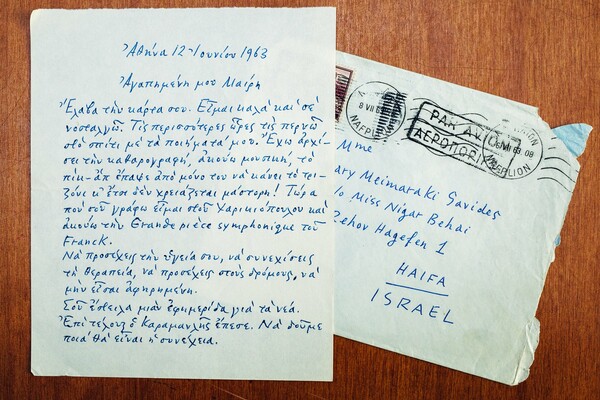 Ἀθήνα 12 Ἰουνίου 1963
Ἀγαπημένη μου Μαίρη
Ἔλαβα τὴν κάρτα σου. Εἶμαι καλὰ καὶ σὲ
νοσταλγῶ. Τὶς περισσότερες ὧρες τὶς περνῶ
στὸ σπίτι μὲ τὰ ποιήματά μου. Ἔχω ἀρχί-
σει τὴν καθαρογραφή, ἀκούω μουσική, τὸ
πικ-ἂπ ἔπαψε ἀπὸ μόνο του νὰ κάνει τὸ τρι-
ζόνι κ' ἔτσι δὲν χρειάζεται μάστορη! Τώρα
ποὺ σοῦ γράφω εἶμαι στοῦ Χαρικιόπουλου καὶ
ἀκούω τὴν Grande pièce symphonique τοῦ
Franck.
Νὰ προσέχεις τὴν ὑγεία σου, νὰ συνεχίσεις
τὴ θεραπεία, νὰ προσέχεις στοὺς δρόμους, νὰ
μὴν εἶσαι ἀφηρημένη.
Σοῦ ἔστειλα μιὰν ἐφημερίδα γιὰ τὰ νέα.
Ἐπὶ τέλους ὁ Καραμανλῆς ἔπεσε. Νὰ δοῦμε
ποιὰ θὰ εἶναι ἡ συνέχεια.
8 VII
NAFPL
PAR AV
ΑΕΡΟΠΟΡΙ
VII 63 08
PLION
Mme
ary Meimaraki Savides
/o Miss Nigar Behai
Zehov Hagefen 1
HAIFA
ISRAEL